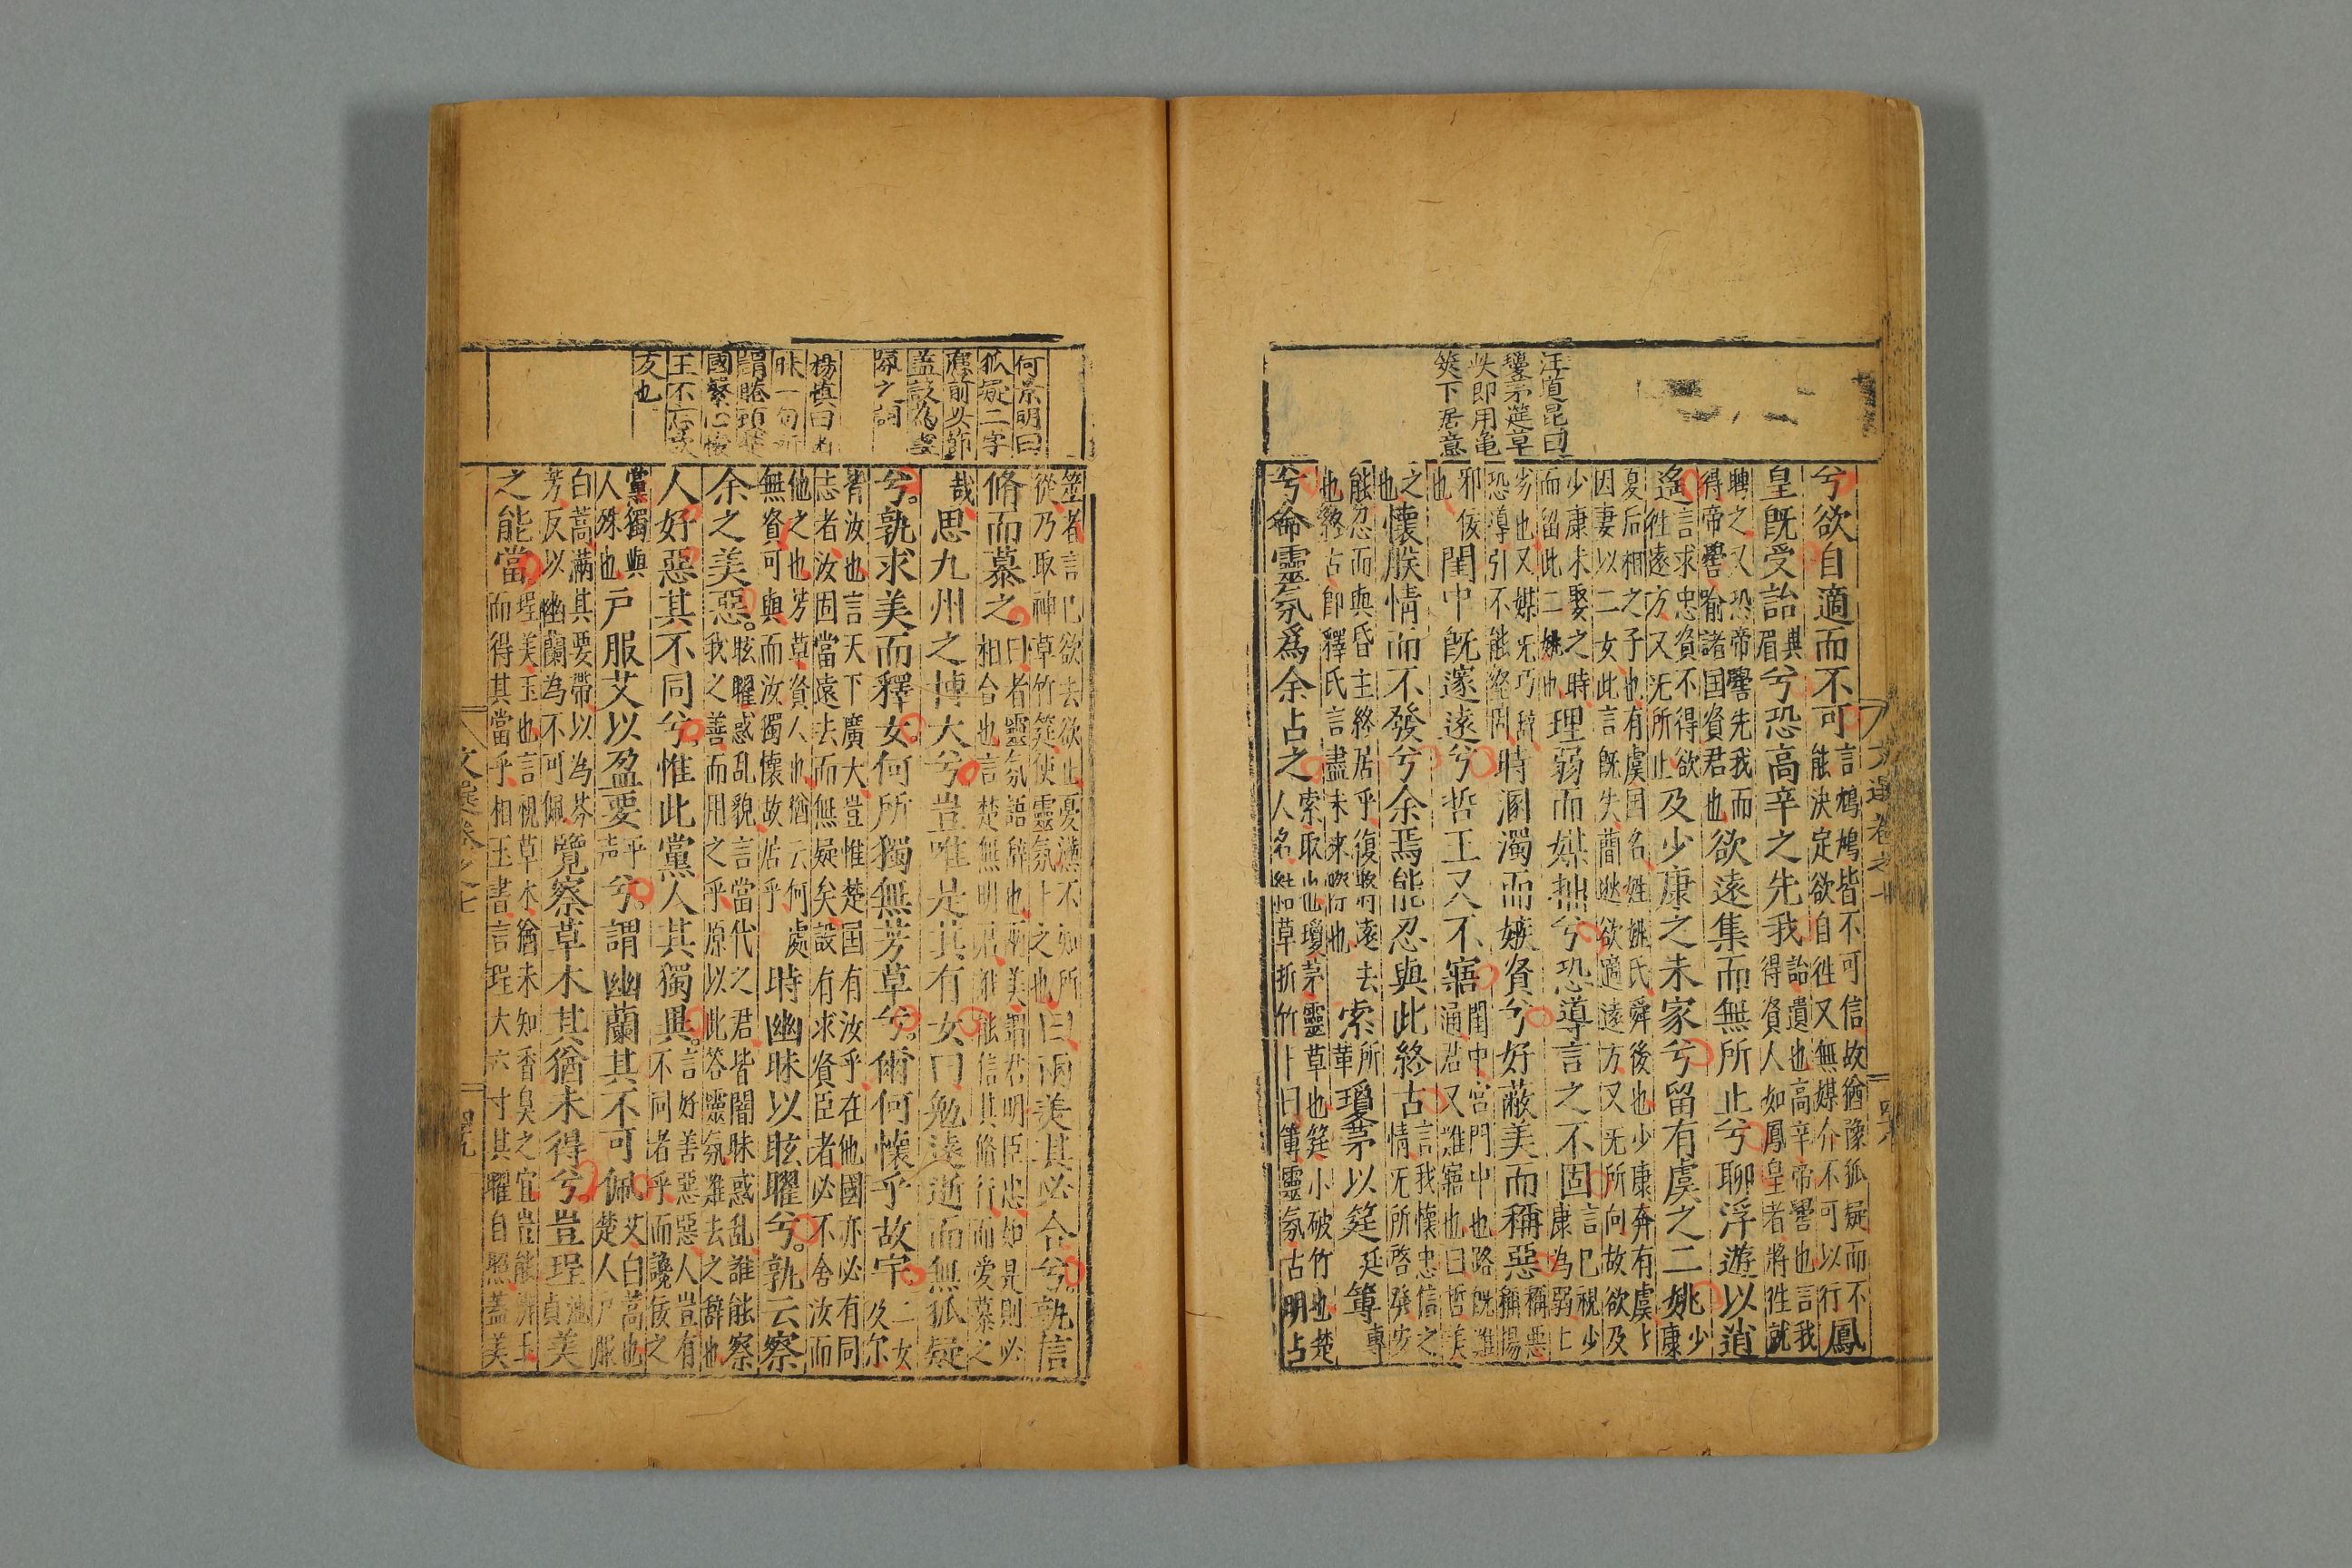 汪道昆曰
瓊茅筳草
央即用亀
筴下居意
兮欲自適而不可 言鴆鳩皆不可信故猶豫狐疑而不
能决定欲自徃又無媒介不可以行 鳳
皇旣受詒 與
眉 兮恐高辛之先我 詒遺也高辛帝嚳也言我
得賢人如鳳皇者將徃就
聘之又恐帝嚳先我而
得帝嚳喻諸国賢君也 欲遠集而無所止兮聊浮遊以逍
遙 言求忠賢不得欲
徃遠方又无所止 及少康之未家兮留有虞之二姚 少
康
夏后相之子也有虞国名姓姚氏舜後也少康奔有虞
因妻以二女此言旣失簡狄欲適遠方又无所向故欲及
少康未娶之時
而留此二姚也 理弱而媒拙兮恐導言之不固 言巳視少
康為弱
劣也又媒无巧辞
恐導引不能 時溷濁而嫉賢兮好蔽美而稱惡 稱惡
稱揚
邪佞
也 閨中旣邃遠兮哲王又不寤 閨中宮門中也路旣難
通君又難寤也曰哲美
之
也 懷朕情而不發兮余焉能忍與此終古 言我懷忠信之
情无所啓發安
能忍而與昏主終居乎復遠去
也終古即釋氏言盡未來 也 索 所
華 瓊茅以筳 廷 篿 專
兮命靈氛爲余占之 索取也瓊茅靈草也筳小破竹也楚
人名結草折竹卜曰篿靈氛古明占
何景明曰
狐疑二字
應前女節
蓋設為靈
氛之詞
楊慎曰
昧一句
國繫心
王不忘
友也
筮者言巳欲去欲止憂懣不知所
從乃取神草竹筳使靈氛卜之也 曰兩美其必合兮孰信
脩而慕之 曰者靈氛語辞也兩美謂君明臣忠如是則必
相合也言楚無明君誰能信其脩行而愛慕之
哉 思九州之博大兮豈唯是其有女曰勉遠逝而無狐疑
兮孰求美而釋女何所獨無芳草兮爾何懷乎故宇 二女
及尔
皆汝也言天下廣大豈惟楚国有汝乎在他國亦必有同
志者汝固當遠去而無疑矣設有求賢臣者必不舍汝而
他之也芳草賢人也猶云何處
無賢可與而汝獨懷故居乎 時幽昧以眩曜兮孰云察
余之美惡 眩曜惑乱貌言當代之君皆闇昧惑乱誰能察
我之善而用之乎原以此荅靈氛難去之辞也
人好惡其不同兮惟此黨人其獨異 言好善惡惡人豈有
不同者乎而讒佞之
黨獨與
人殊也 戸服艾以盈要 平
声 兮謂幽蘭其不可佩 艾白蒿也
楚人戸服
白蒿滿其要帶以為芬
芳反以幽蘭為不可佩 覽察草木其猶未得兮豈珵 美
之能當 珵美玉也言視草木猶未知香臭之宜豈能辨玉
而得其當乎相玉書言珵大六寸其曜自照蓋美